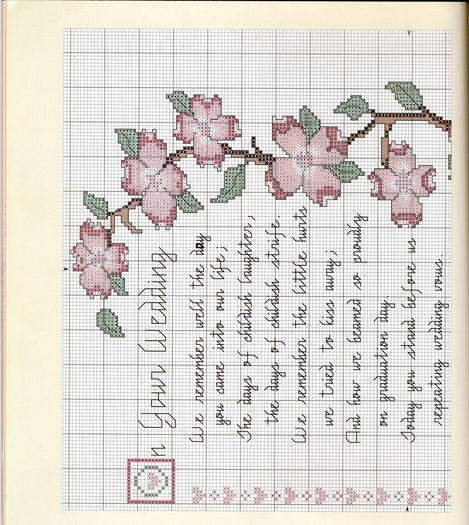 On Your Wedding
We remember well the day
you came into our life;
The days of childish laughter,
the days of childish strife.
We remember the little hurts
we tried to kiss away;
And how we beamed so proudly
on graduation day
Today you stand before us
repeating wedding vows.